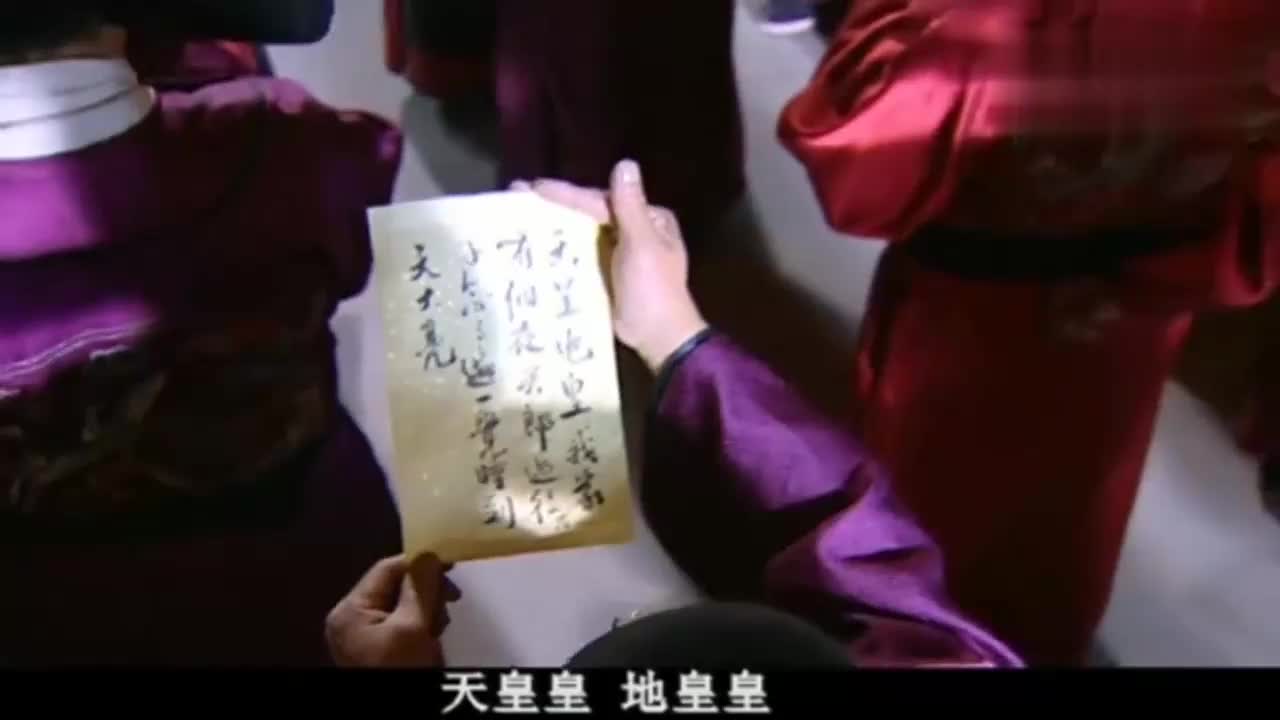 天皇地皇我家
有個夜哭郎過往
子念三遍一覺睡到
天大亮
天皇皇 地皇皇